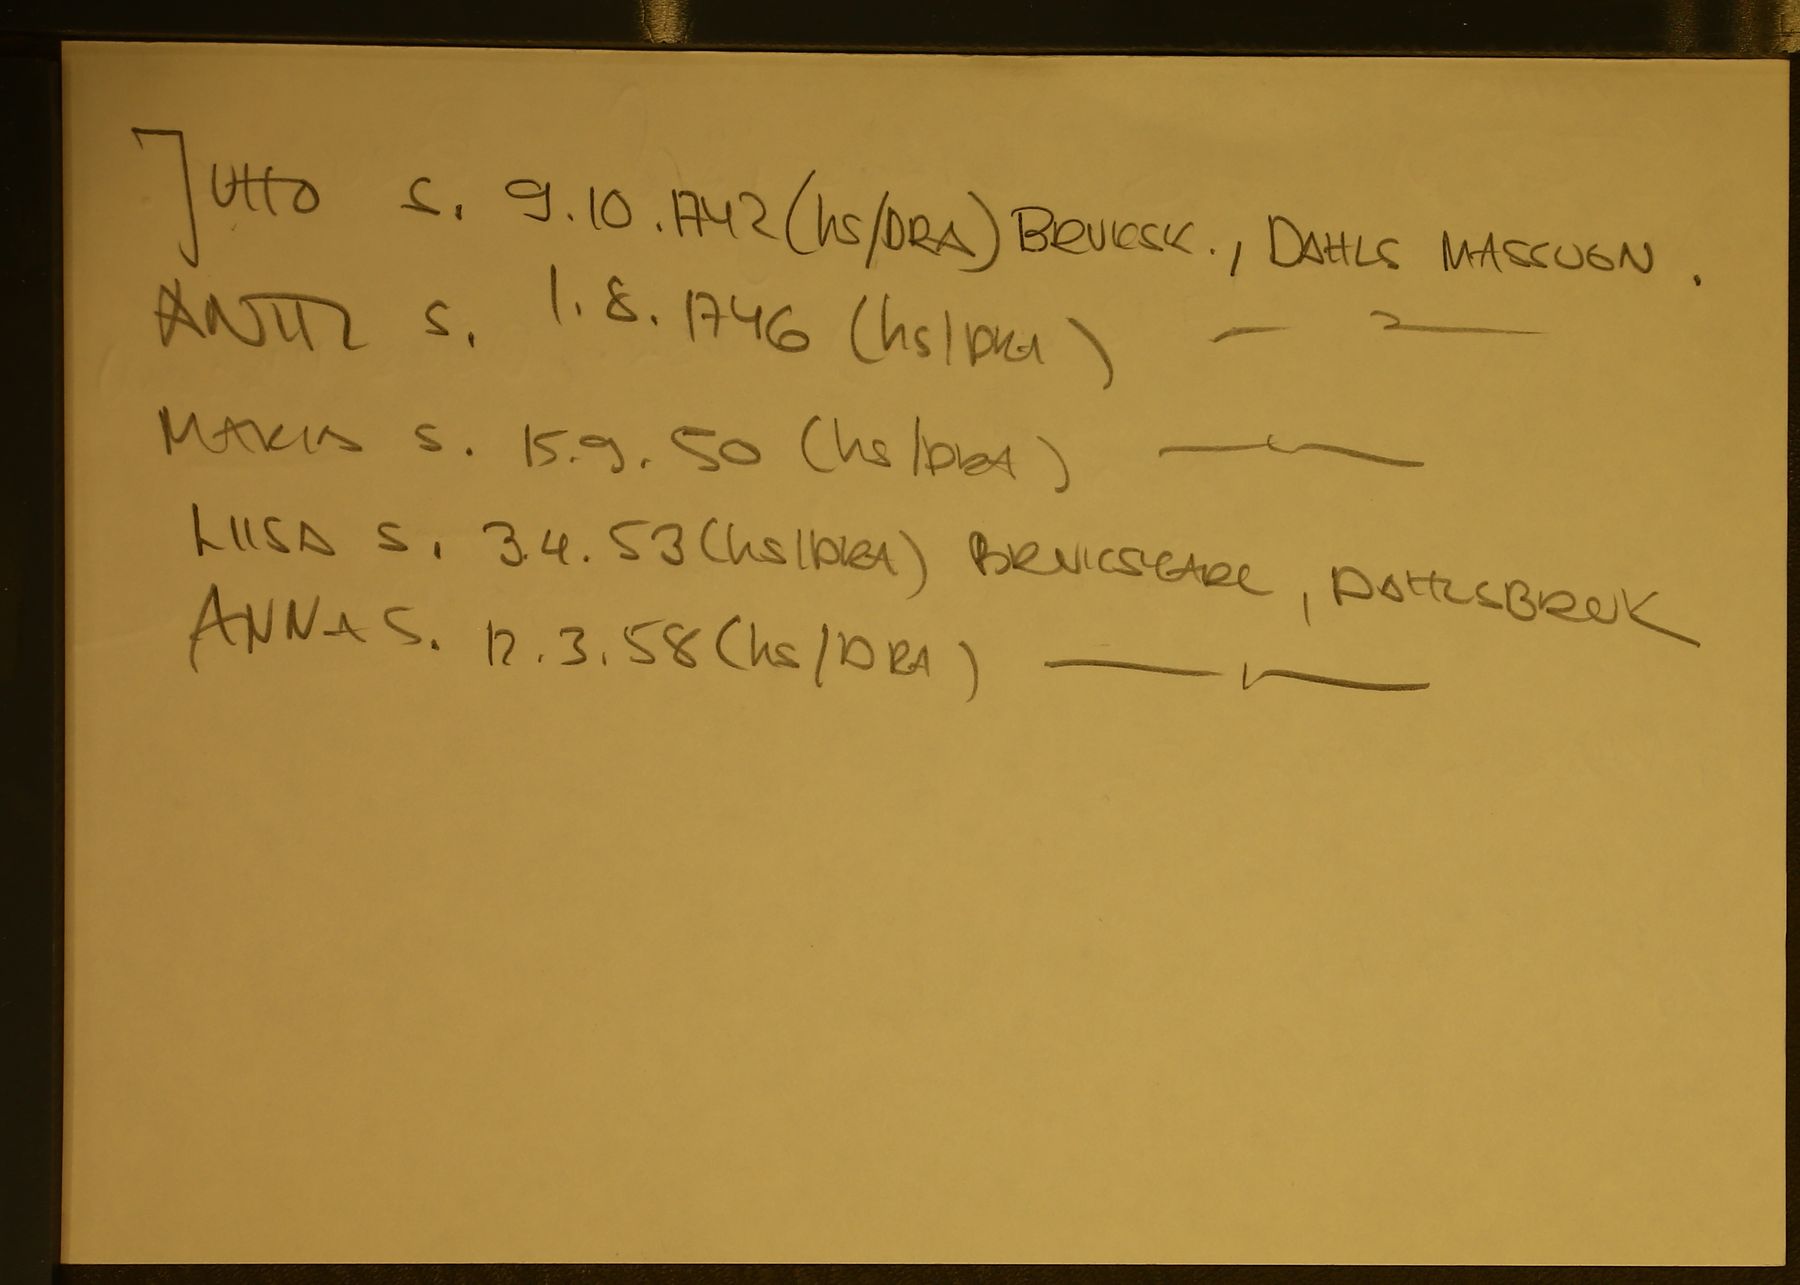 JUTTO S. 9.10.1742 (hs/DRA) BRUKSK., DAHLS MASSUGN.
ANTTI S. 1.8.1746 (hs/DRA) — " —
MARIA S. 15.9.50 (hs/DRA) — " —
LIISA S. 3.4.53 (hs/DRA) BRUKSKARL, DAHLSBRUK
ANNA S. 12.3.58 (hs/DRA) — " —